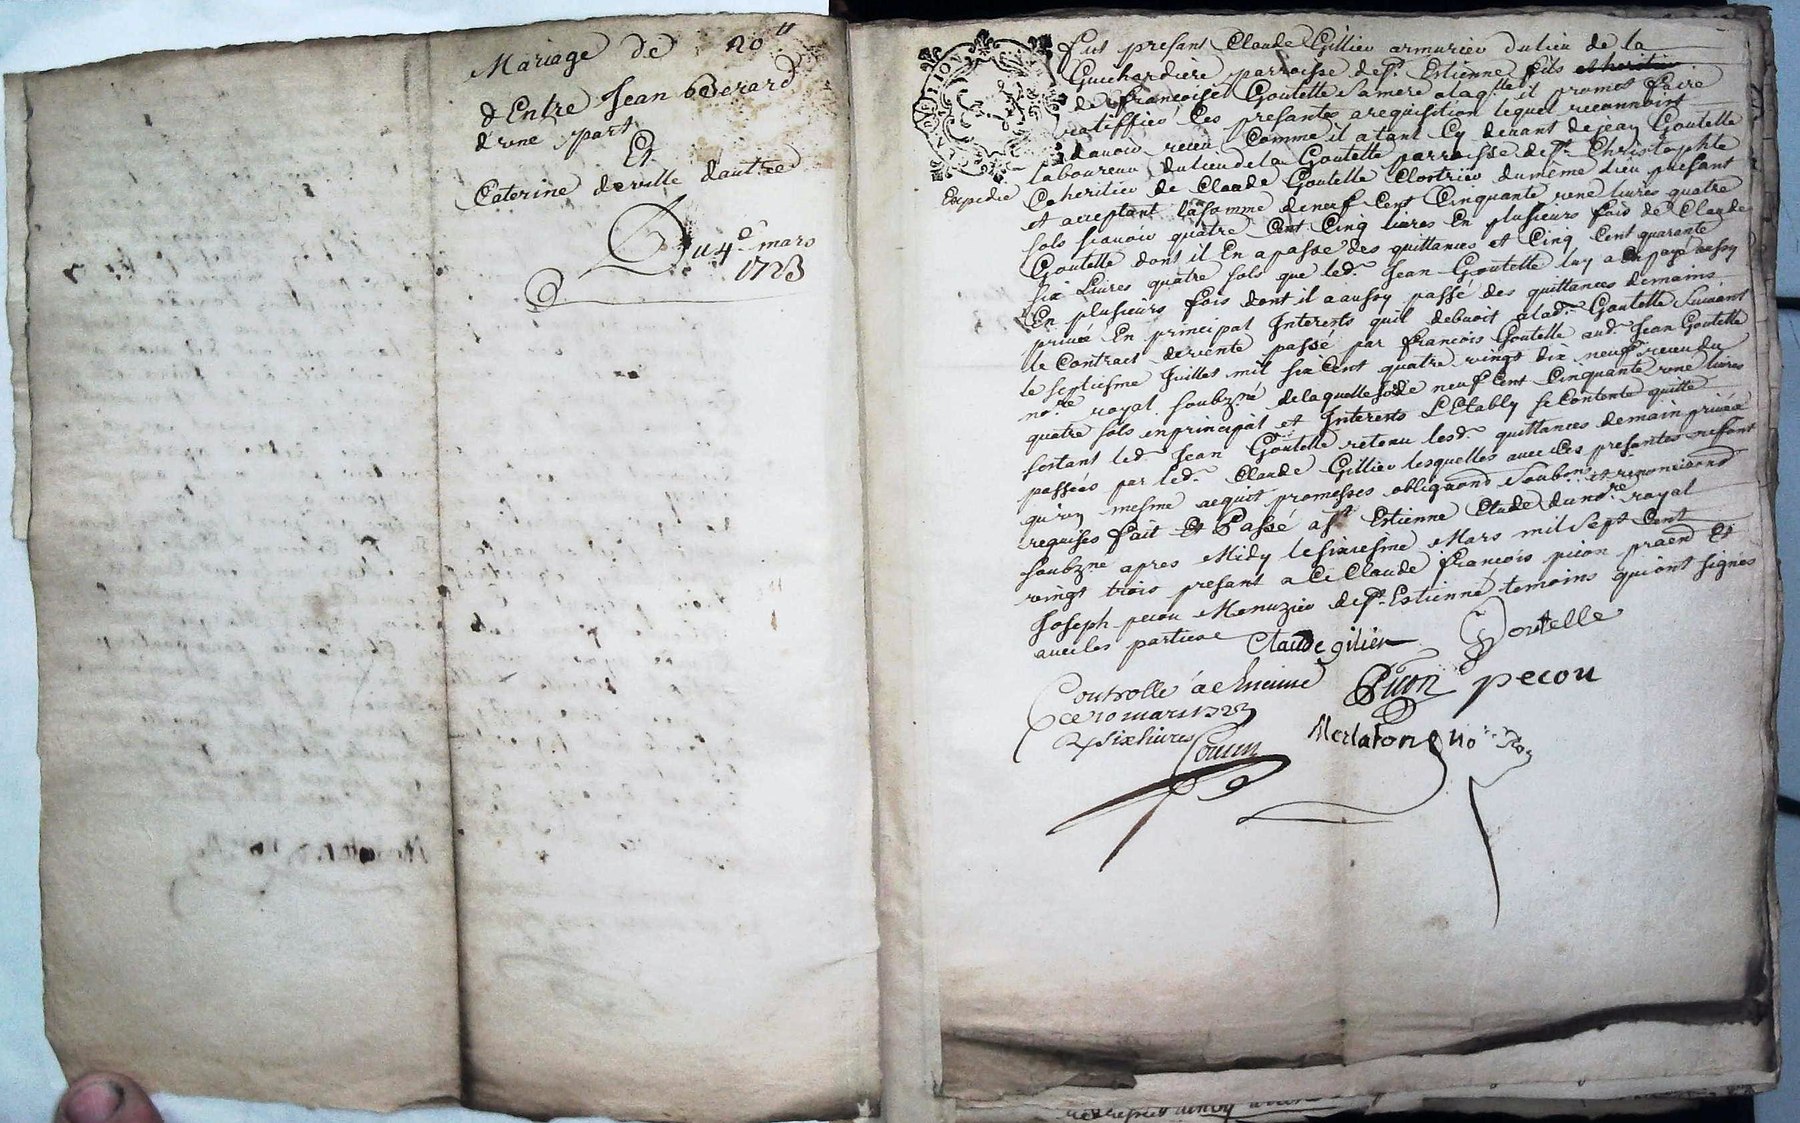 Mariage de 20ll
d'Entre Jean beverard
d'vne part
Et
Caterine derville dautre
Du 4e mars
1723
fut presant Claude Gillier armurier du lieu de la
Guichardiere parroisse de St. Estienne fils et heritier
de françoise Goutelle sa mere a laqlle il promet faire
ratiffier ces presantes a reqüisition lequel reconnoist
davoir receu comme il a tant cy devant de jean Goutelle
laboureur du lieu de la Goutelle parroisse de St. Christophle
Expedie
Coheritier de Claude Goutelle Clostrier du même lieu presant
et acceptant la somme de neuf cent cinquante vne livres quatre
sols scauoir quatre cent cinq livres En plusieurs fois de Claude
Goutelle dont il En a passé des quittances et cinq cent quarante
six livres quatre sols que led. Jean Goutelle luy a En payé aussy
En plusieurs fois dont il a aussy passé des quittances de mains
privée En principal Interests quil debuoit a lad. Goutelle suivant
le Contract de vente passé par francois Goutelle aud. Jean Goutelle
le septiesme Juillet mil six cent quatre vingt dix neuf receu du
nore royal soubzné de laquelle so.e de neuf cent cinquante vne livres
quatre sols en principal et Interests L'Etably se contente quitte
sestant led. Jean Goutelle retenu lesd. quittances de main privée
passées par led. Claude Gillier lesquelles auec les presantes ne font
qu'vn mesme acquit promesses obligaons soubons et renonciaons
requises fait Et Passé a St Estienne Etude du nore royal
soubzne apres Midy le sixiesme Mars mil sept Cent
vingt trois presant a Ce Claude françois picon praend Et
Joseph pecou Menuzier de St. Estienne temoins qui ont signés
auec les parties
Claude gilier
Goutelle
Controllé a St Etienne
ce 10 mars 1723
R six livres
Picon
pecou
Merlaton no.re Roy